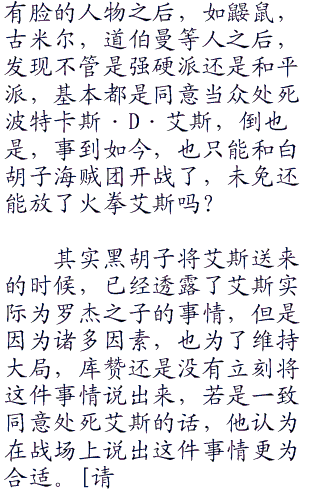 有脸的人物之后，如鼹鼠，
古米尔，道伯曼等人之后，
发现不管是强硬派还是和平
派，基本都是同意当众处死
波特卡斯·D·艾斯，倒也
是，事到如今，也只能和白
胡子海贼团开战了，未免还
能放了火拳艾斯吗？
其实黑胡子将艾斯送来
的时候，已经透露了艾斯实
际为罗杰之子的事情，但是
因为诸多因素，也为了维持
大局，库赞还是没有立刻将
这件事情说出来，若是一致
同意处死艾斯的话，他认为
在战场上说出这件事情更为
合适。[请